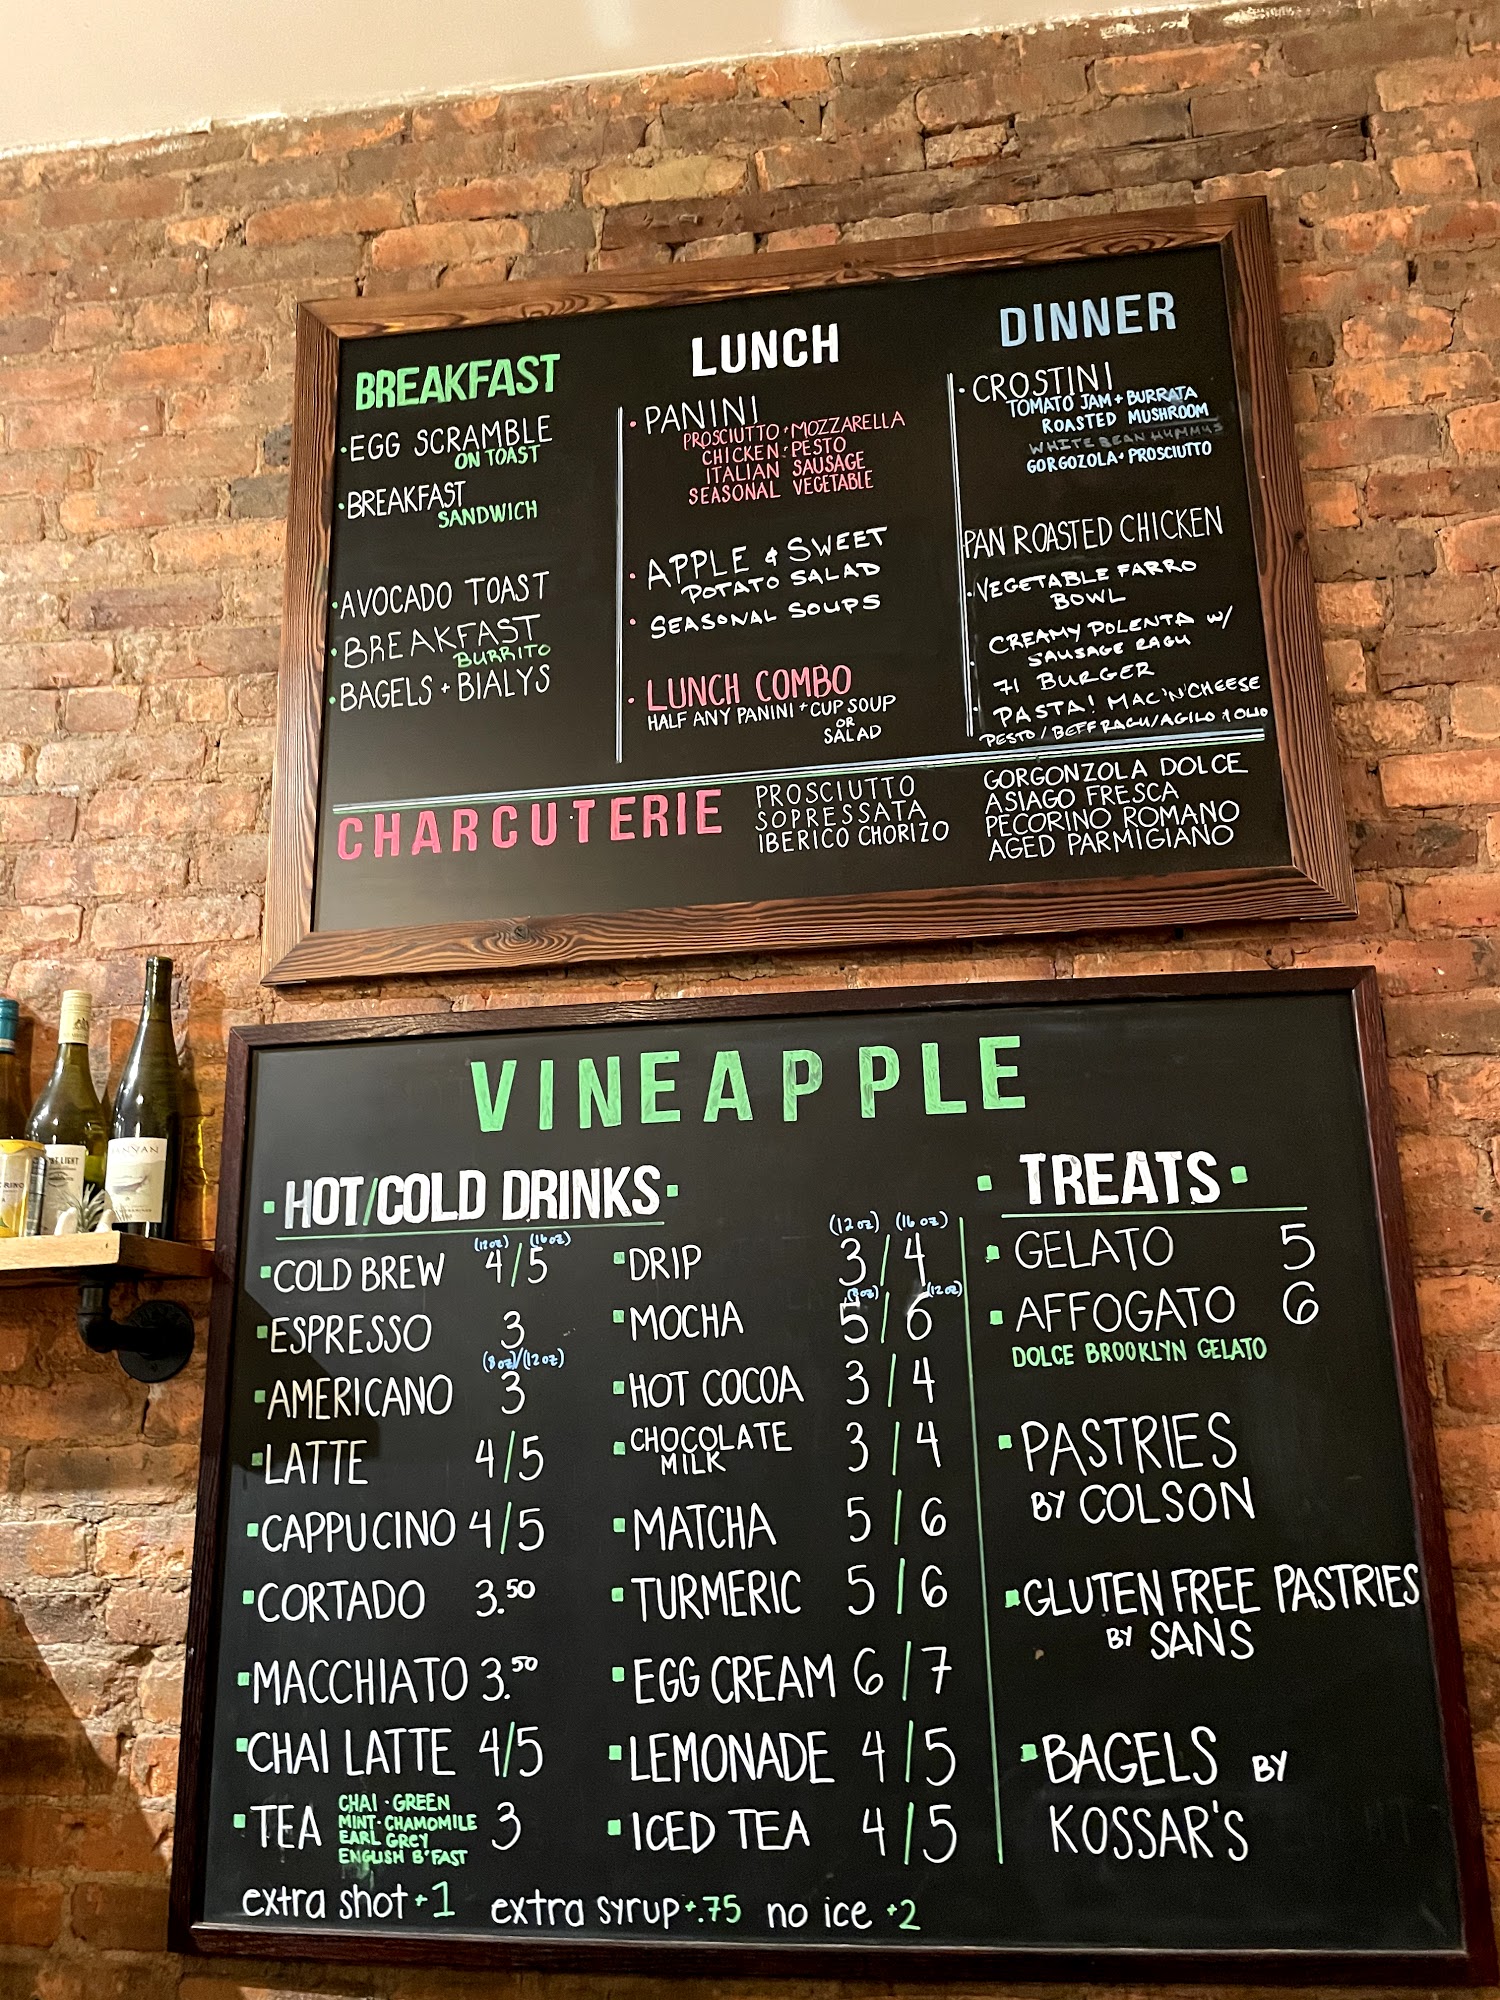 BREAKFAST
·EGG SCRAMBLE
ON TOAST
·BREAKFAST
SANDWICH
·AVOCADO TOAST
·BREAKFAST
BURRITO
·BAGELS + BIALYS
LUNCH
·PANINI
PROSCIUTTO·MOZZARELLA
CHICKEN·PESTO
ITALIAN SAUSAGE
SEASONAL VEGETABLE
·APPLE & SWEET
POTATO SALAD
·SEASONAL SOUPS
·LUNCH COMBO
HALF ANY PANINI + CUP SOUP
OR
SALAD
DINNER
·CROSTINI
TOMATO JAM + BURRATA
ROASTED MUSHROOM
WHITE BEAN HUMMUS
GORGOZOLA· PROSCIUTTO
PAN ROASTED CHICKEN
·VEGETABLE FARRO
BOWL
CREAMY POLENTA W/
·SAUSAGE RAGU
71 BURGER
·PASTA! MAC'N'CHEESE
PESTO / BEFF RAGU/AGILO & OLIO
CHARCUTERIE
PROSCIUTTO
SOPRESSATA
IBERICO CHORIZO
GORGONZOLA DOLCE
ASIAGO FRESCA
PECORINO ROMANO
AGED PARMIGIANO
VINEAPPLE
·HOT/COLD DRINKS·
(12oz) (16oz)
·COLD BREW 4/5
·ESPRESSO 3
(8oz)/(12oz)
·AMERICANO 3
·LATTE 4/5
·CAPPUCINO 4/5
·CORTADO 3.50
·MACCHIATO 3.50
·CHAI LATTE 4/5
·TEA 3
CHAI · GREEN
MINT·CHAMOMILE
EARL GREY
ENGLISH B'FAST
(12oz) (16oz)
·DRIP 3/4
(8oz) (12oz)
·MOCHA 5/6
·HOT COCOA 3/4
·CHOCOLATE
MILK 3/4
·MATCHA 5/6
·TURMERIC 5/6
·EGG CREAM 6/7
·LEMONADE 4/5
·ICED TEA 4/5
extra shot +1 extra syrup +.75 no ice +2
·TREATS·
·GELATO 5
·AFFOGATO 6
DOLCE BROOKLYN GELATO
·PASTRIES
BY COLSON
·GLUTEN FREE PASTRIES
BY SANS
·BAGELS BY
KOSSAR'S